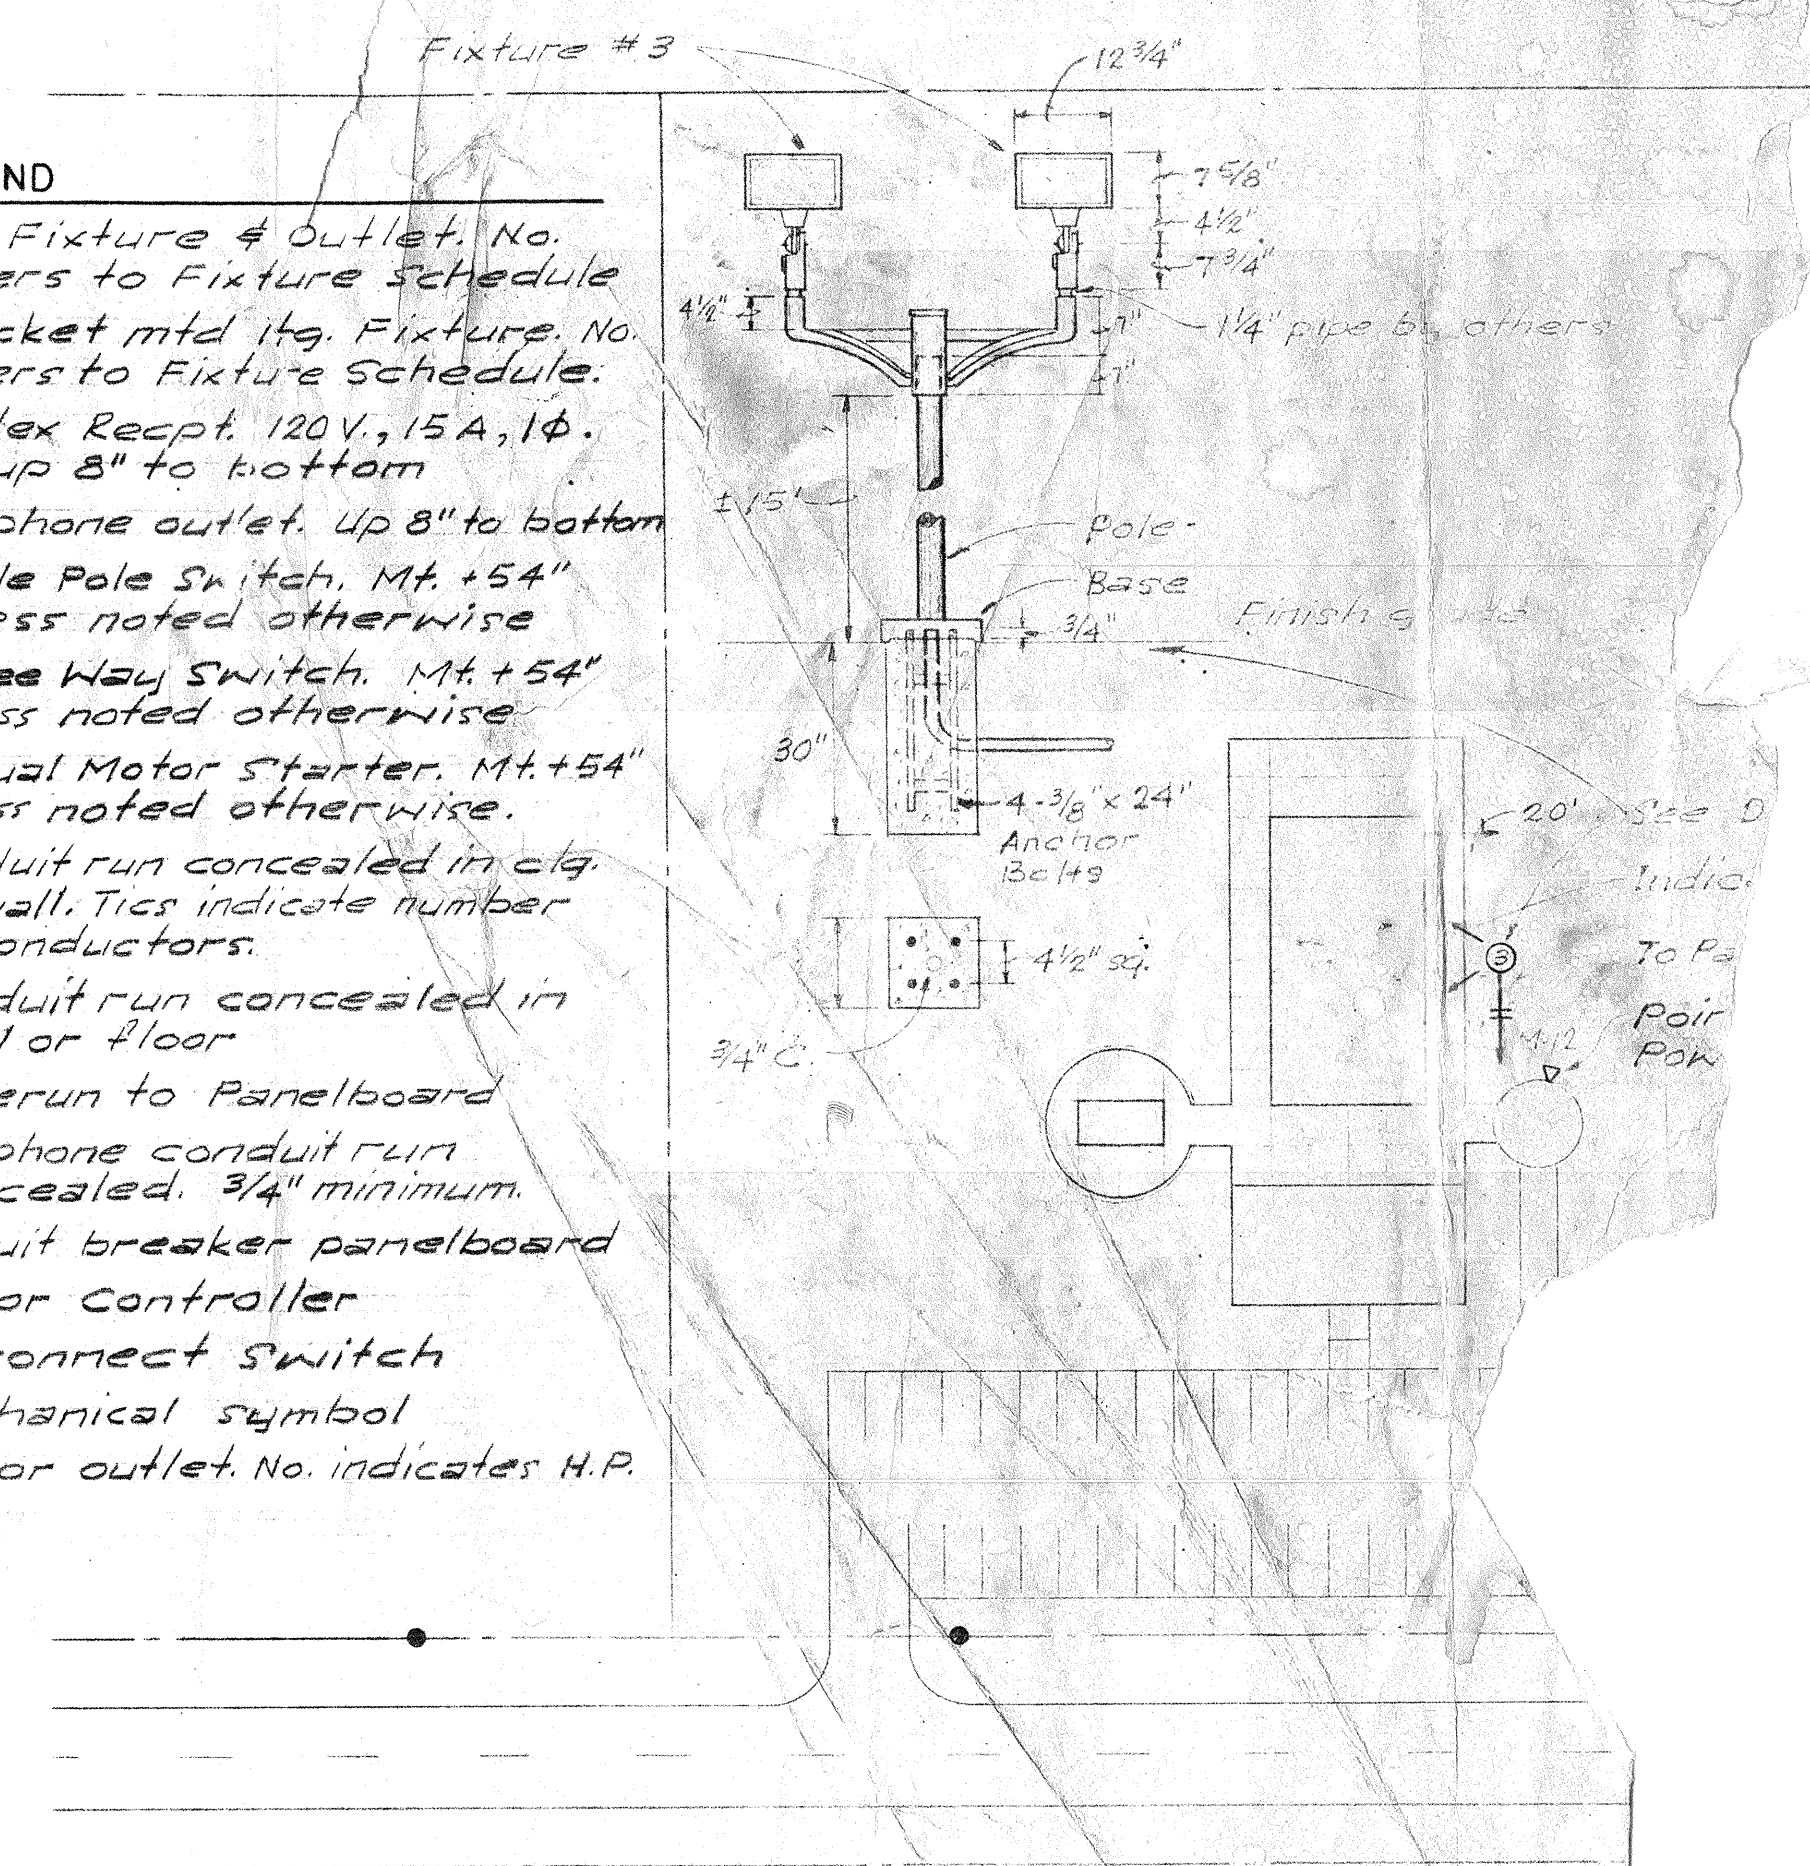 Fixture #3
12 3/4"
ND
Fixture & Outlet. No.
ers to Fixture Schedule
cket mtd ltg. Fixture. No.
ers to Fixture Schedule.
lex Recpt. 120 V., 15 A, 1ϕ.
up 8" to bottom
phone outlet. Up 8" to bottom
le Pole Switch. Mt. +54"
ess noted otherwise
ee Way Switch. Mt. +54"
ss noted otherwise
ual Motor Starter. Mt. +54"
ss noted otherwise.
duit run concealed in clg.
wall. Tics indicate number
onductors.
duit run concealed in
or floor
erun to Panelboard
phone conduit run
cealed. 3/4" minimum.
uit breaker panelboard
or Controller
connect Switch
hanical symbol
or outlet. No. indicates H.P.
7 5/8"
4 1/2"
7 3/4"
4 1/2"
7"
1 1/4" pipe by others
7"
± 15'
Pole
Base
3/4"
Finish g
30"
4 - 3/8" x 24"
Anchor
Bolts
4 1/2" sq.
3/4" C.
20'
See D
Indic.
3
To Pa
Poir
Pow